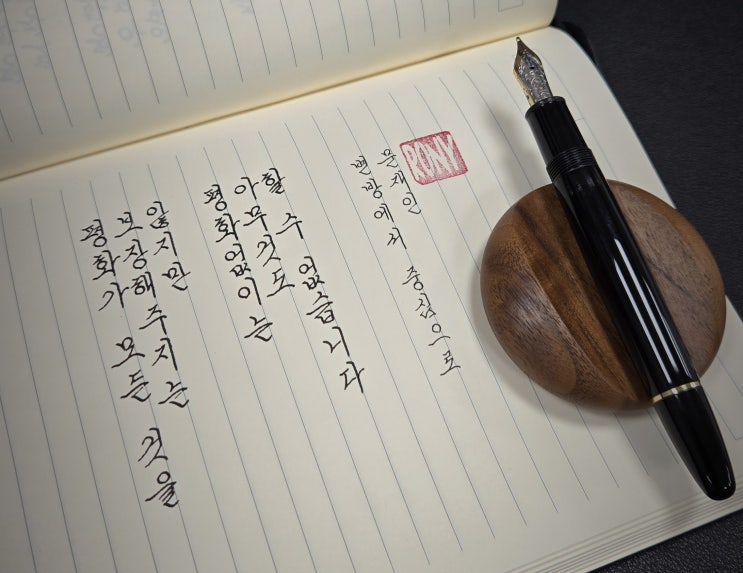 평화가 모든 것을
보장해주지는
않지만
평화없이는
아무것도
할 수 없습니다
변방에서 중심으로
문재인
RONY